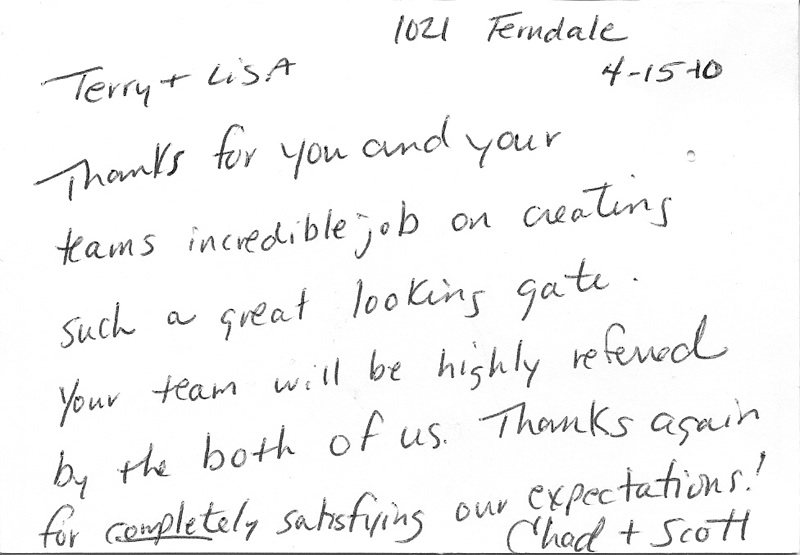 1021 Ferndale
Terry + LiSA
4-15-10
Thanks for you and your
teams incredible job on creating
such a great looking gate.
Your team will be highly referred
by the both of us. Thanks again
for completely satisfying our expectations!
Chad + Scott